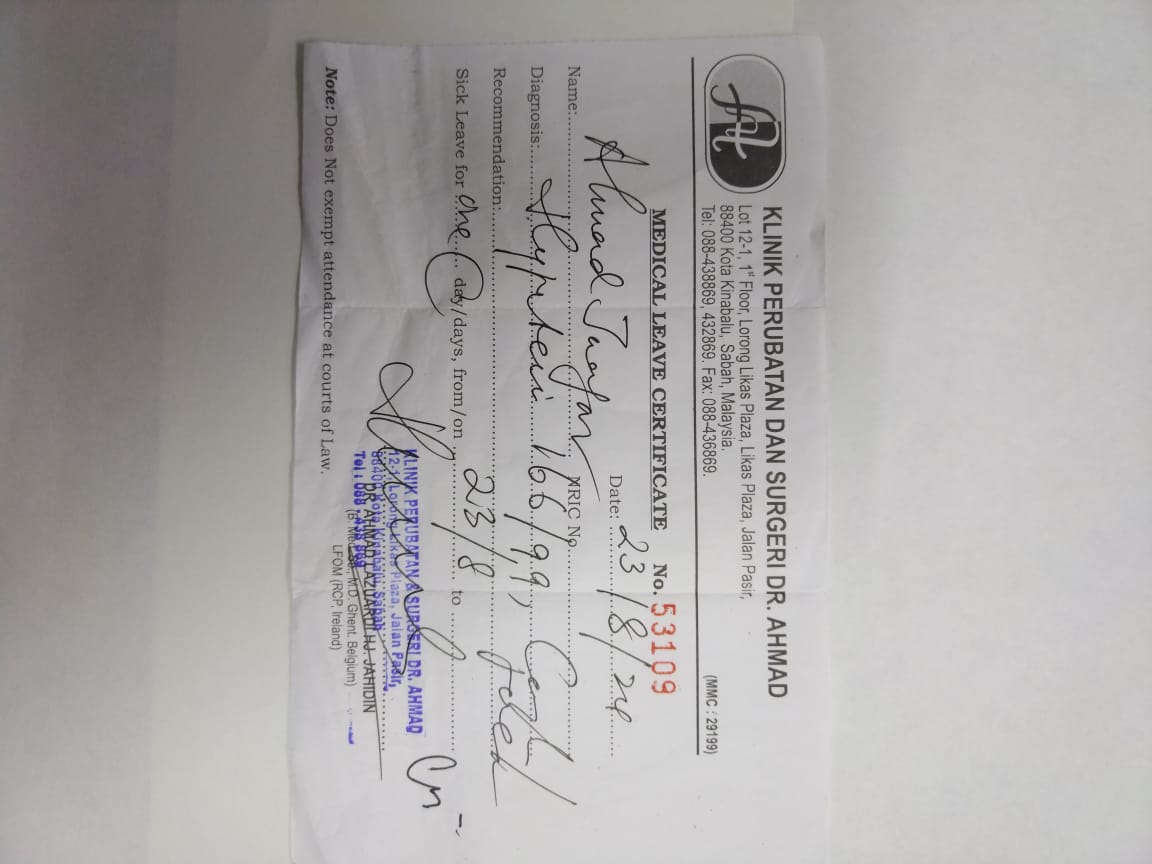 KLINIK PERUBATAN DAN SURGERI DR. AHMAD
(MMC : 29199)
Lot 12-1, 1st Floor, Lorong Likas Plaza, Likas Plaza, Jalan Pasir,
88400 Kota Kinabalu, Sabah, Malaysia.
Tel: 088-438869, 432869. Fax: 088-436869.
MEDICAL LEAVE CERTIFICATE No. 53109
Date: 23/8/24
Name: Ahmad NRIC No.
Diagnosis: 166/99,
Recommendation:
Sick Leave for one day/days, from/on 23/8 to
KLINIK PERUBATAN & SURGERI DR. AHMAD
12-1, Lorong Likas Plaza, Jalan Pasir,
88400 Kota Kinabalu, Sabah
Tel : 088 - 438 869
DR. AHMAD LAZUARDI HJ. JAHIDIN
(B. Med. Sc., M.D. Ghent. Belgium)
LFOM (RCP, Ireland)
Note: Does Not exempt attendance at courts of Law.